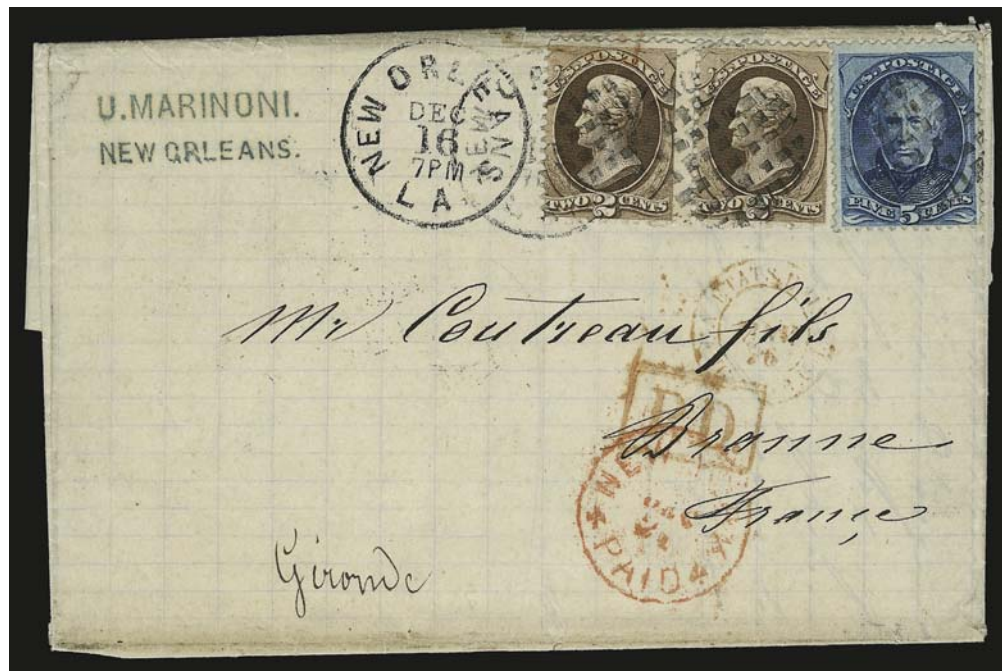 U. MARINONI.
NEW ORLEANS.
NEW ORLEANS
DEC
16
7PM
LA
U.S. POSTAGE
TWO 2 CENTS
U.S. POSTAGE
TWO 2 CENTS
U.S. POSTAGE
FIVE 5 CENTS
ETATS
Mr Coutreau fils
P.D.
Branne
France
NEW
DEC
PAID
Gironde